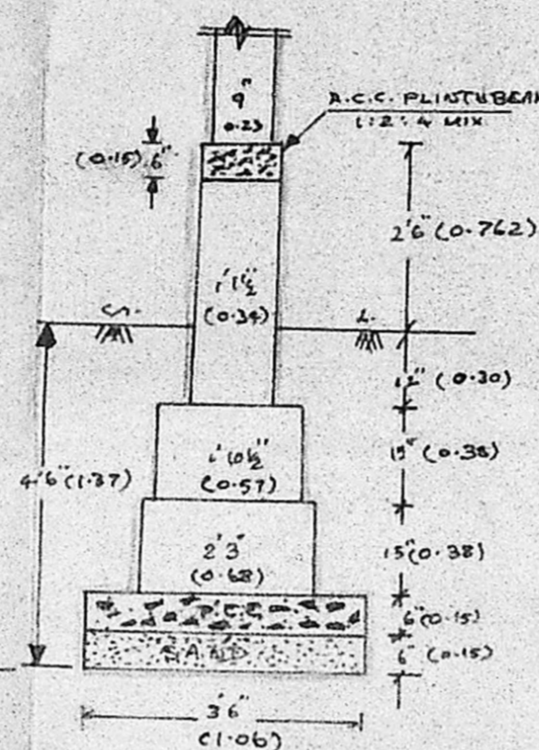 9"
0.23
R.C.C. PLINTH BEAM
1:2:4 MIX.
(0.15) 6"
2'6" (0.762)
1'1½"
(0.34)
G. L.
12" (0.30)
1'10½"
(0.57)
15" (0.38)
4'6" (1.37)
2'3"
(0.68)
15" (0.38)
6" (0.15)
SAND
6" (0.15)
3'6"
(1.06)